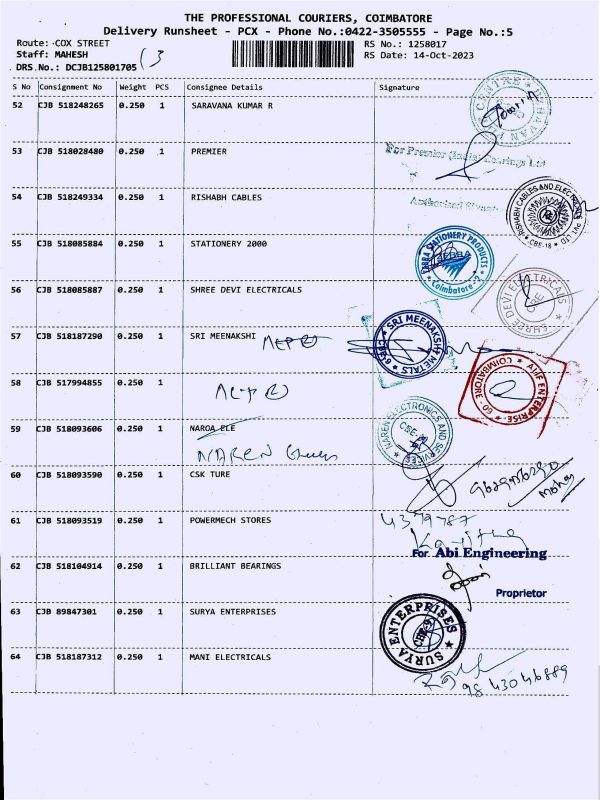 THE PROFESSIONAL COURIERS, COIMBATORE
Delivery Runsheet - PCX - Phone No.:0422-3505555 - Page No.:5
Route: COX STREET RS No.: 1258017
Staff: MAHESH RS Date: 14-Oct-2023
DRS No.: DCJB125801705
S No Consignment No Weight PCS Consignee Details Signature
52 CJB 518248265 0.250 1 SARAVANA KUMAR R
53 CJB 518028480 0.250 1 PREMIER
For Premier (India) Bearings Ltd
54 CJB 518249334 0.250 1 RISHABH CABLES
Authorised
RISHABH CABLES AND ELECTRICALS PVT LTD CBE-18
55 CJB 518085884 0.250 1 STATIONERY 2000
STATIONERY PRODUCTS Coimbatore-2
56 CJB 518085887 0.250 1 SHREE DEVI ELECTRICALS
SHREE DEVI ELECTRICALS CBE
57 CJB 518187290 0.250 1 SRI MEENAKSHI
SRI MEENAKSHI METALS
58 CJB 517994855 0.250 1
ALIF ENTERPRISE COIMBATORE
59 CJB 518093606 0.250 1 NAROA ELE
NAREN
NAREN ELECTRONICS AND SERVICES
60 CJB 518093590 0.250 1 CSK TURE
61 CJB 518093519 0.250 1 POWERMECH STORES
For Abi Engineering
62 CJB 518104914 0.250 1 BRILLIANT BEARINGS
Proprietor
63 CJB 89847301 0.250 1 SURYA ENTERPRISES
SURYA ENTERPRISES
64 CJB 518187312 0.250 1 MANI ELECTRICALS
9843046889